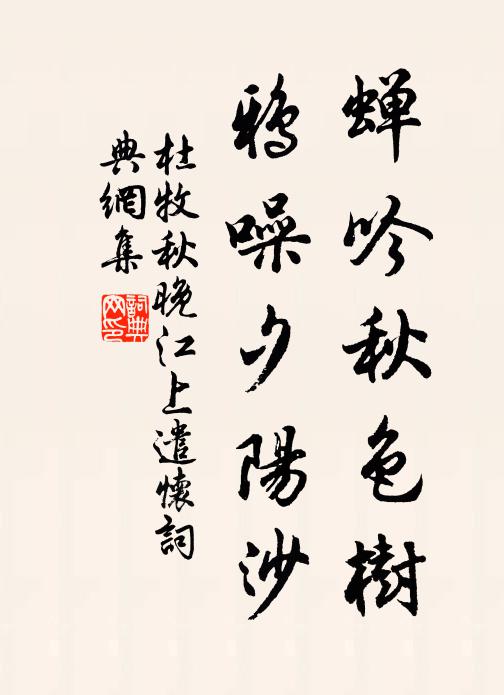 蝉吟秋色樹
鴉噪夕陽沙
杜牧秋晚江上遣懷詞
典網集
詞典网印